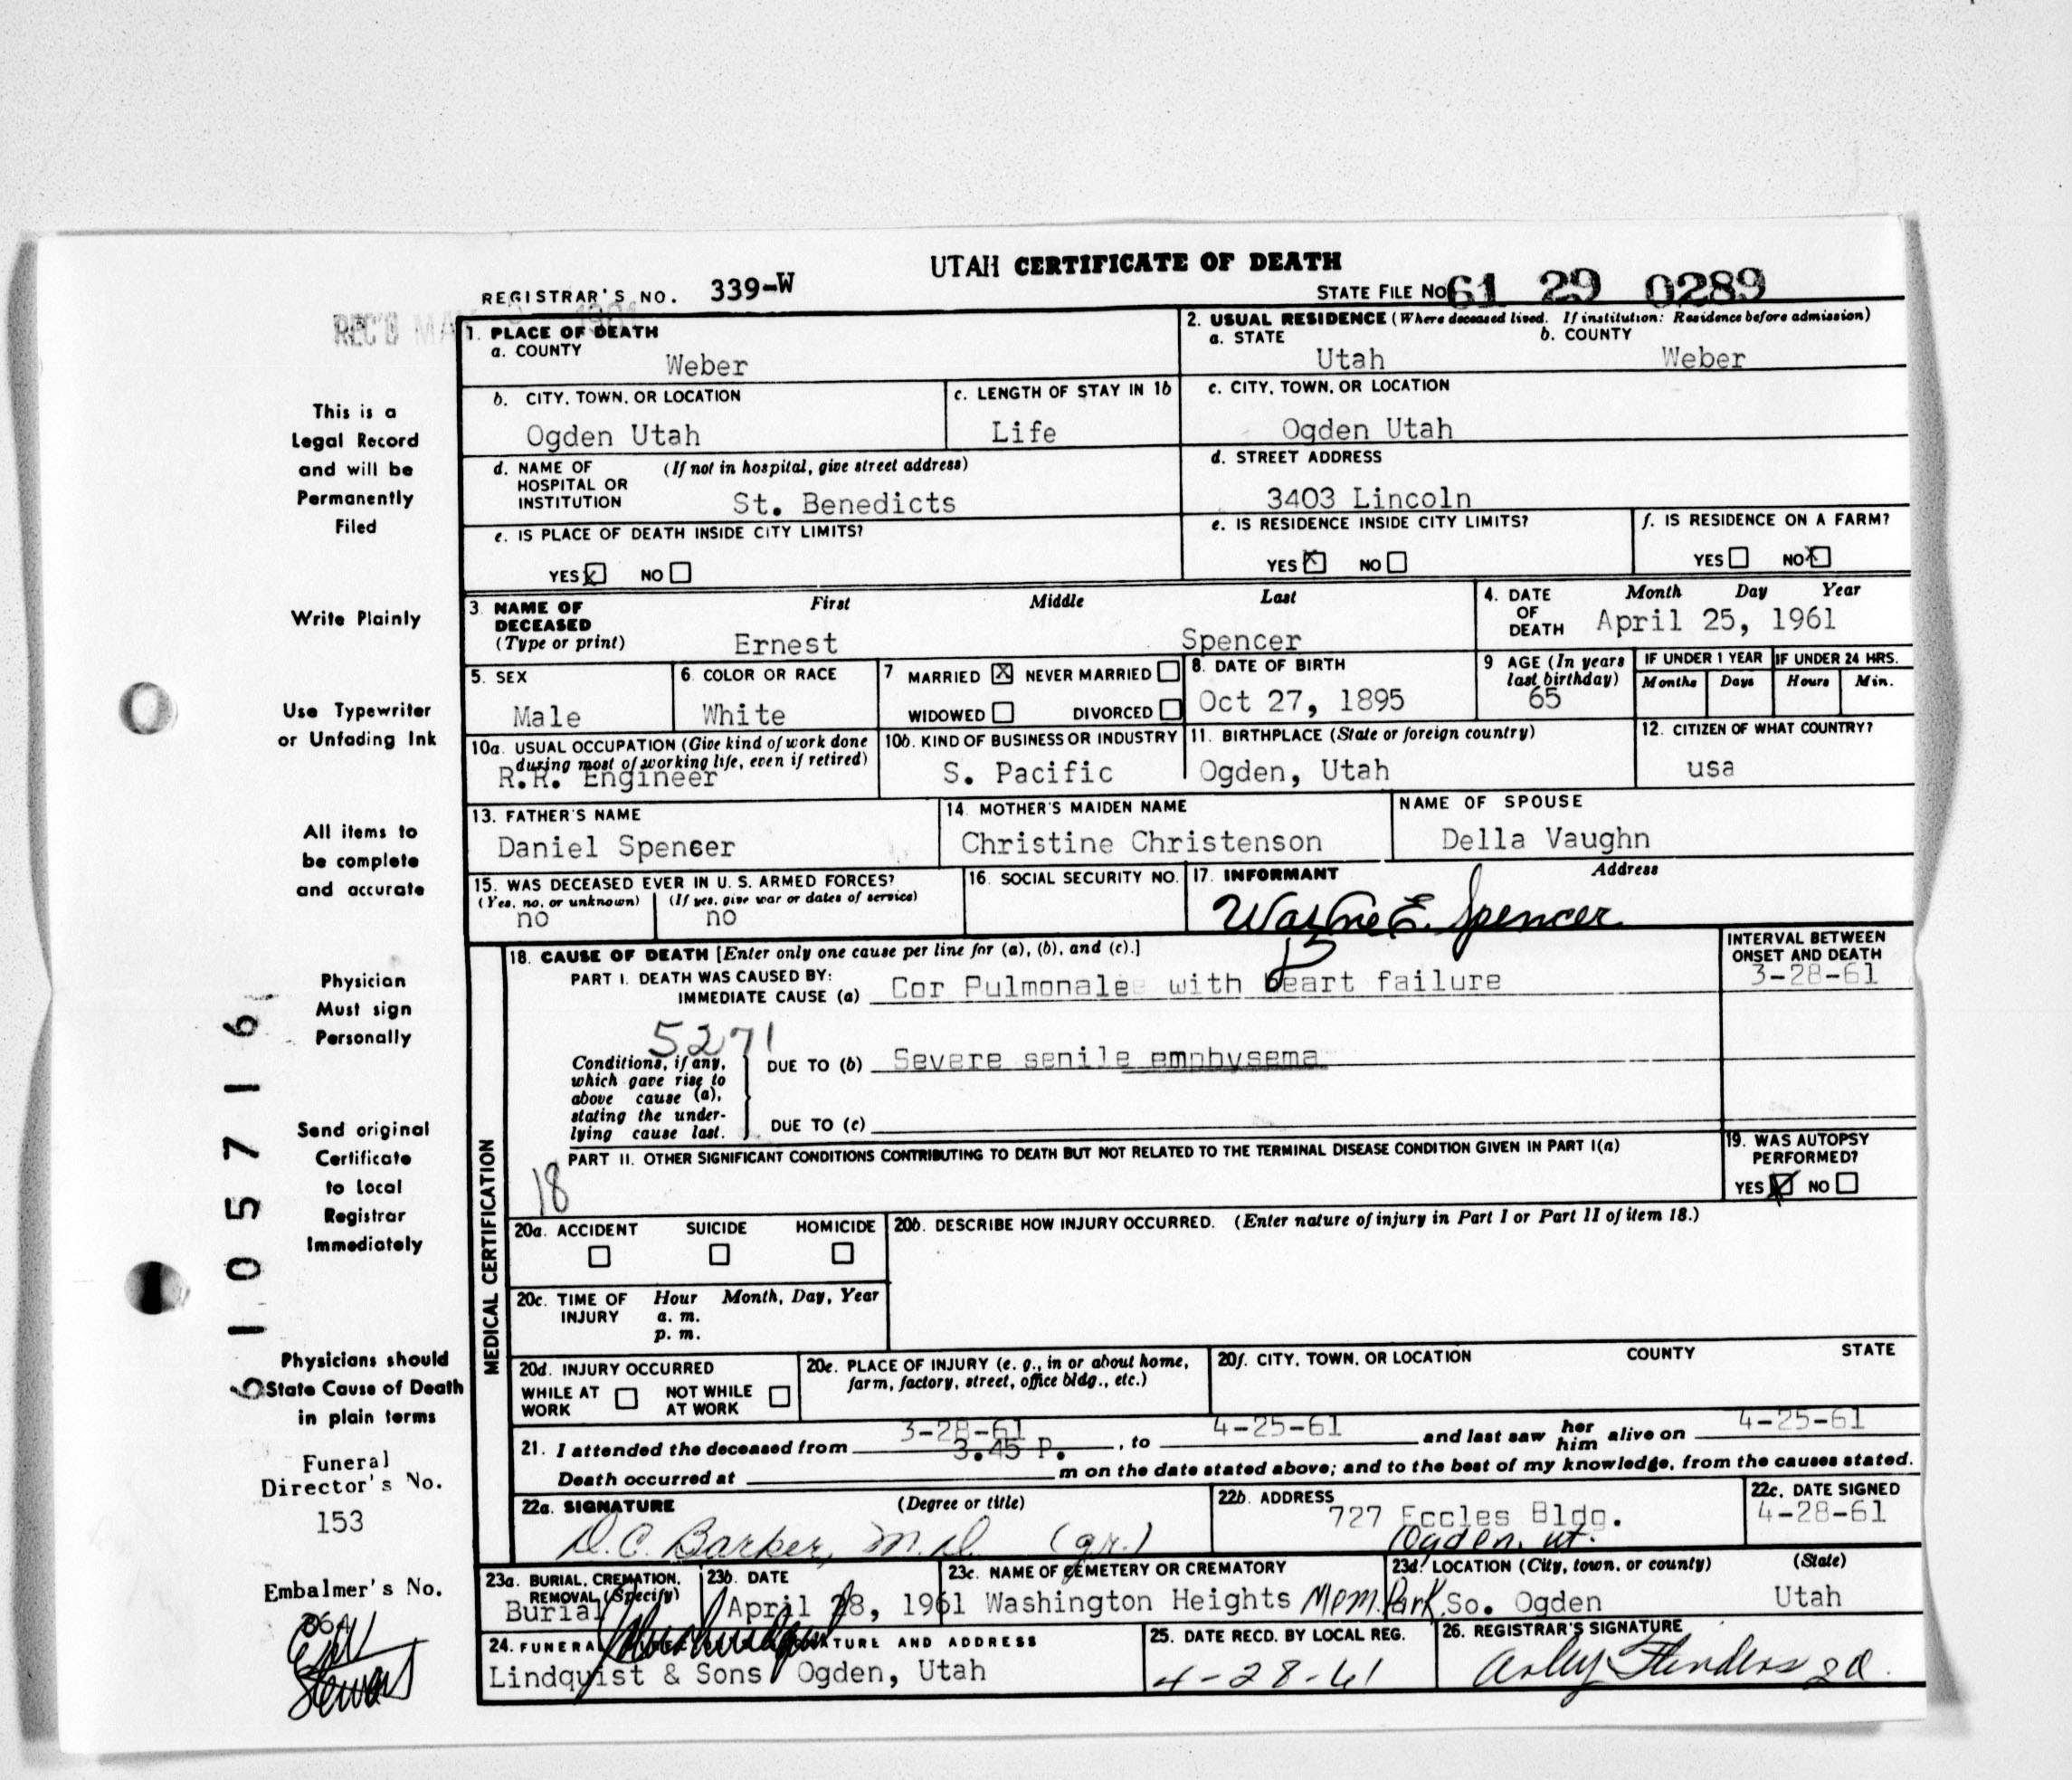 UTAH CERTIFICATE OF DEATH
REGISTRAR'S NO. 339-W
STATE FILE NO. 61 29 0289
REC'D MAY
1. PLACE OF DEATH
a. COUNTY
Weber
2. USUAL RESIDENCE (Where deceased lived. If institution: Residence before admission)
a. STATE
Utah
b. COUNTY
Weber
b. CITY, TOWN, OR LOCATION
Ogden Utah
c. LENGTH OF STAY IN 1b
Life
c. CITY, TOWN, OR LOCATION
Ogden Utah
d. NAME OF HOSPITAL OR INSTITUTION
(If not in hospital, give street address)
St. Benedicts
d. STREET ADDRESS
3403 Lincoln
e. IS PLACE OF DEATH INSIDE CITY LIMITS?
YES X NO
e. IS RESIDENCE INSIDE CITY LIMITS?
YES X NO
f. IS RESIDENCE ON A FARM?
YES NO X
3. NAME OF DECEASED
(Type or print)
First Middle Last
Ernest Spencer
4. DATE OF DEATH
Month Day Year
April 25, 1961
5. SEX
Male
6. COLOR OR RACE
White
7 MARRIED X NEVER MARRIED
WIDOWED DIVORCED
8. DATE OF BIRTH
Oct 27, 1895
9 AGE (In years last birthday)
65
IF UNDER 1 YEAR
Months Days
IF UNDER 24 HRS.
Hours Min.
10a. USUAL OCCUPATION (Give kind of work done during most of working life, even if retired)
R.R. Engineer
10b. KIND OF BUSINESS OR INDUSTRY
S. Pacific
11. BIRTHPLACE (State or foreign country)
Ogden, Utah
12. CITIZEN OF WHAT COUNTRY?
usa
13. FATHER'S NAME
Daniel Spencer
14. MOTHER'S MAIDEN NAME
Christine Christenson
NAME OF SPOUSE
Della Vaughn
15. WAS DECEASED EVER IN U. S. ARMED FORCES?
(Yes, no, or unknown) (If yes, give war or dates of service)
no no
16. SOCIAL SECURITY NO.
17. INFORMANT Address
Wayne E. Spencer
MEDICAL CERTIFICATION
18. CAUSE OF DEATH [Enter only one cause per line for (a), (b), and (c).]
PART I. DEATH WAS CAUSED BY:
IMMEDIATE CAUSE (a) Cor Pulmonale with heart failure
INTERVAL BETWEEN ONSET AND DEATH
3-28-61
5271
Conditions, if any, which gave rise to above cause (a), stating the underlying cause last.
DUE TO (b) Severe senile emphysema
DUE TO (c)
PART II. OTHER SIGNIFICANT CONDITIONS CONTRIBUTING TO DEATH BUT NOT RELATED TO THE TERMINAL DISEASE CONDITION GIVEN IN PART I(a)
18
19. WAS AUTOPSY PERFORMED?
YES X NO
20a. ACCIDENT SUICIDE HOMICIDE
20b. DESCRIBE HOW INJURY OCCURRED. (Enter nature of injury in Part I or Part II of item 18.)
20c. TIME OF INJURY
Hour Month, Day, Year
a. m.
p. m.
20d. INJURY OCCURRED
WHILE AT WORK NOT WHILE AT WORK
20e. PLACE OF INJURY (e. g., in or about home, farm, factory, street, office bldg., etc.)
20f. CITY, TOWN, OR LOCATION COUNTY STATE
21. I attended the deceased from 3-28-61, to 4-25-61 and last saw her him alive on 4-25-61
Death occurred at 3.45 P. m on the date stated above; and to the best of my knowledge, from the causes stated.
22a. SIGNATURE (Degree or title)
D.C. Barker, M.D. (gr.)
22b. ADDRESS
727 Eccles Bldg.
Ogden, Ut.
22c. DATE SIGNED
4-28-61
23a. BURIAL, CREMATION, REMOVAL (Specify)
Burial
23b. DATE
April 28, 1961
23c. NAME OF CEMETERY OR CREMATORY
Washington Heights Mem. Park
23d. LOCATION (City, town, or county) (State)
So. Ogden Utah
24. FUNERAL SIGNATURE AND ADDRESS
Lindquist & Sons Ogden, Utah
25. DATE RECD. BY LOCAL REG.
4-28-61
26. REGISTRAR'S SIGNATURE
This is a
Legal Record
and will be
Permanently
Filed
Write Plainly
Use Typewriter
or Unfading Ink
All items to
be complete
and accurate
Physician
Must sign
Personally
Send original
Certificate
to Local
Registrar
Immediately
Physicians should
State Cause of Death
in plain terms
Funeral
Director's No.
153
Embalmer's No.
Stewart
6105716